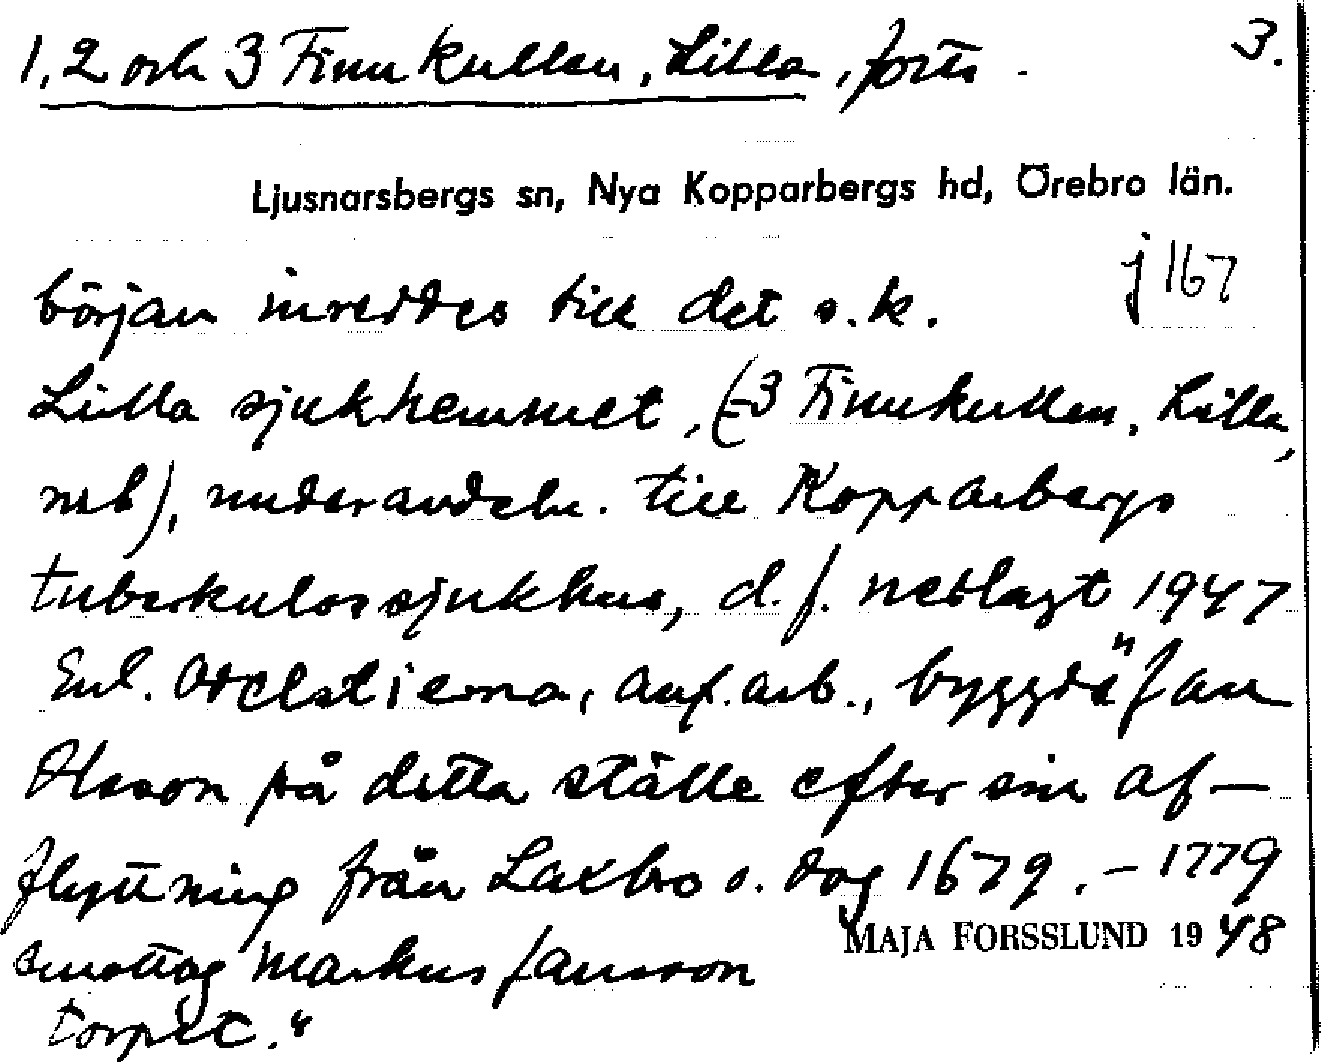 1, 2 och 3 Finnkullen, Lilla, forts. 3.
Ljusnarsbergs sn, Nya Kopparbergs hd, Örebro län.
j 167
början inreddes till det s.k.
Lilla sjukhemmet, (=3 Finnkullen, Lilla,
nrb), underavdeln. till Kopparbergs
tuberkulossjukhus, d.f. nedlagt 1947
Enl. Odelstierna, anf. arb., byggde "Jan
Olsson på detta ställe efter sin af-
flyttning från Laxbro o. dog 1679. – 1779
emottog Markus Jansson
torpet."
MAJA FORSSLUND 1948